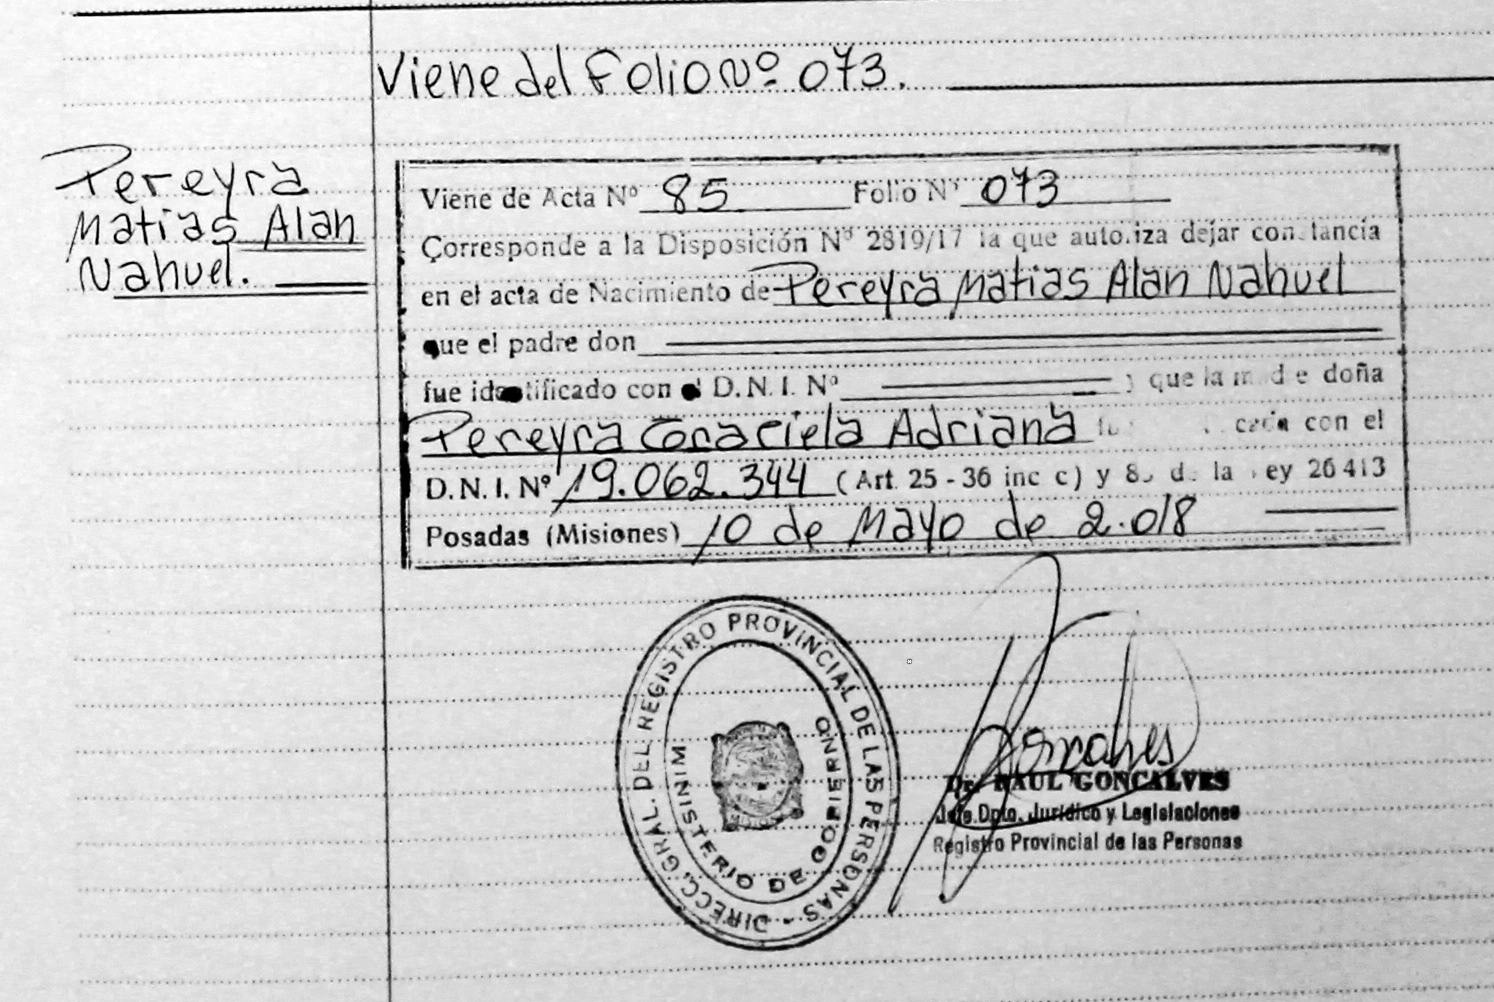 Viene del Folio Nº 073.
Pereyra
Matias Alan
Nahuel.
Viene de Acta Nº 85 Folio Nº 073
Corresponde a la Disposición Nº 2819/17 la que autoriza dejar constancia
en el acta de Nacimiento de Pereyra Matias Alan Nahuel
que el padre don
fue identificado con el D.N.I. Nº y que la madre doña
Pereyra Graciela Adriana con el
D.N.I. Nº 19.062.344 (Art. 25 - 36 inc c) y de la Ley 26413
Posadas (Misiones) 10 de Mayo de 2.018
DIRECC. GRAL. DEL REGISTRO PROVINCIAL DE LAS PERSONAS -
MINISTERIO DE GOBIERNO
Goncalves
Dr. RAUL GONCALVES
Jefe Dpto. Jurídico y Legislaciones
Registro Provincial de las Personas